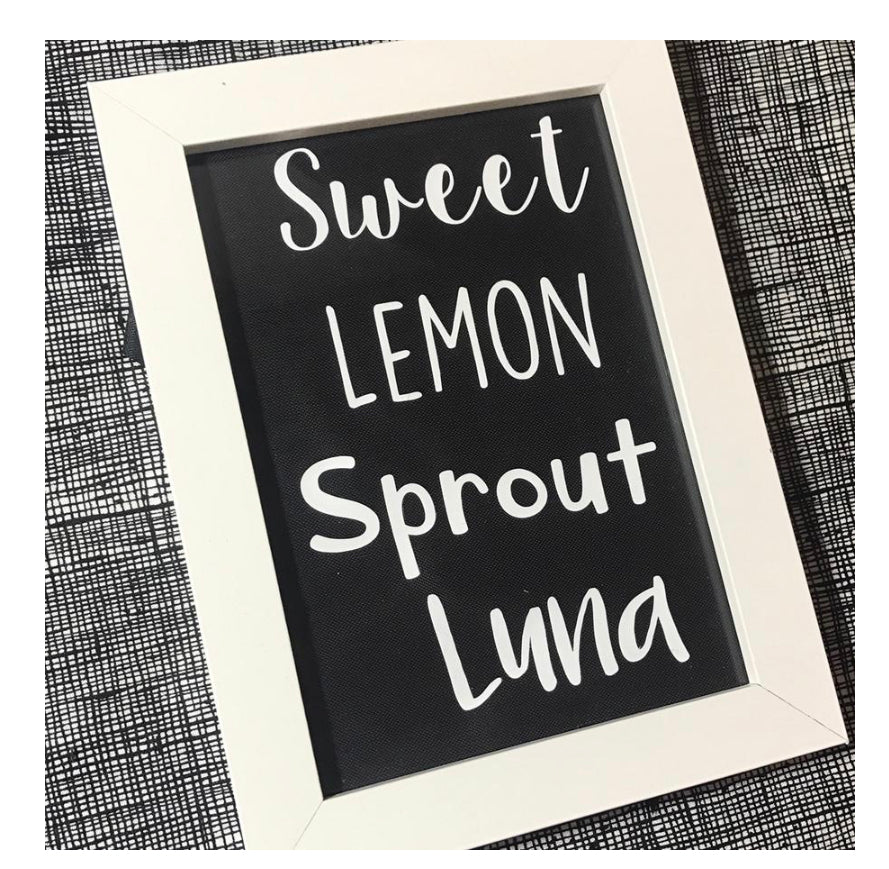 Sweet
LEMON
Sprout
Luna